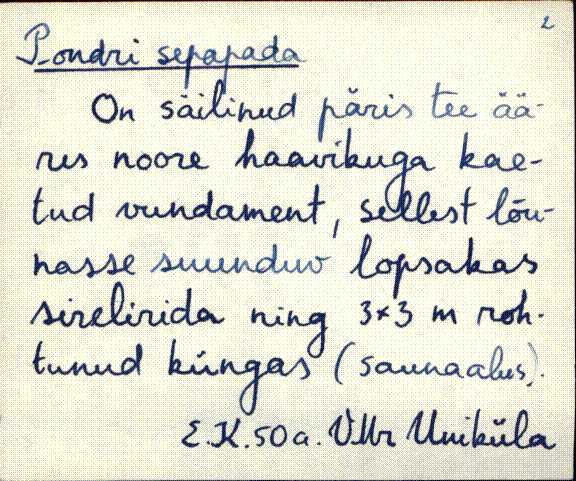 2
Pondri sepapada
On säilinud päris tee ää-
res noore haavikuga kae-
tud vundament, sellest lõu-
nasse suunduv lopsakas
sirelirida ning 3x3 m roh-
tunud küngas (saunaalus).
E.K. 50 a. VMr Uniküla